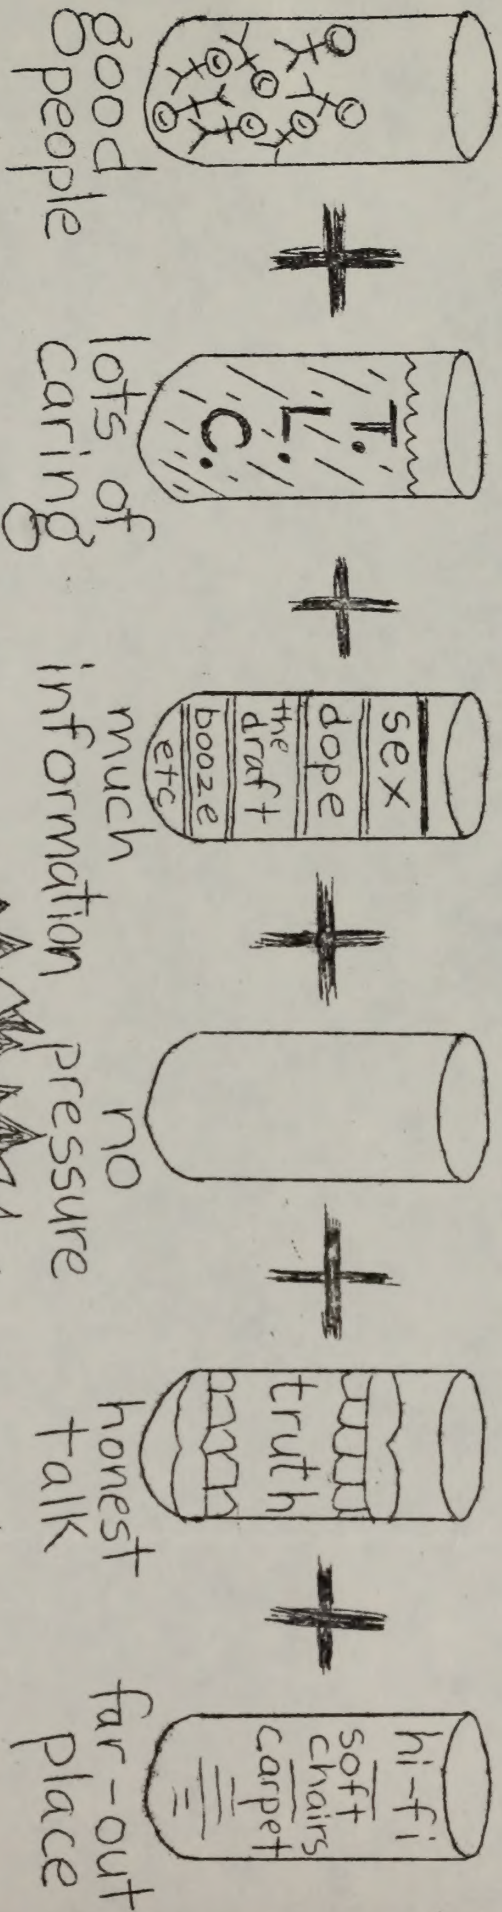 good
people
+
T.
L.
C.
lots of
caring
+
sex
dope
the
draft
booze
etc
much
information
+
no
pressure
+
truth
honest
talk
+
hi-fi
soft
chairs
carpet
far-out
place